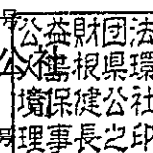 号
公益財団法
人島根県環
境保健公社
理事長之印
公社